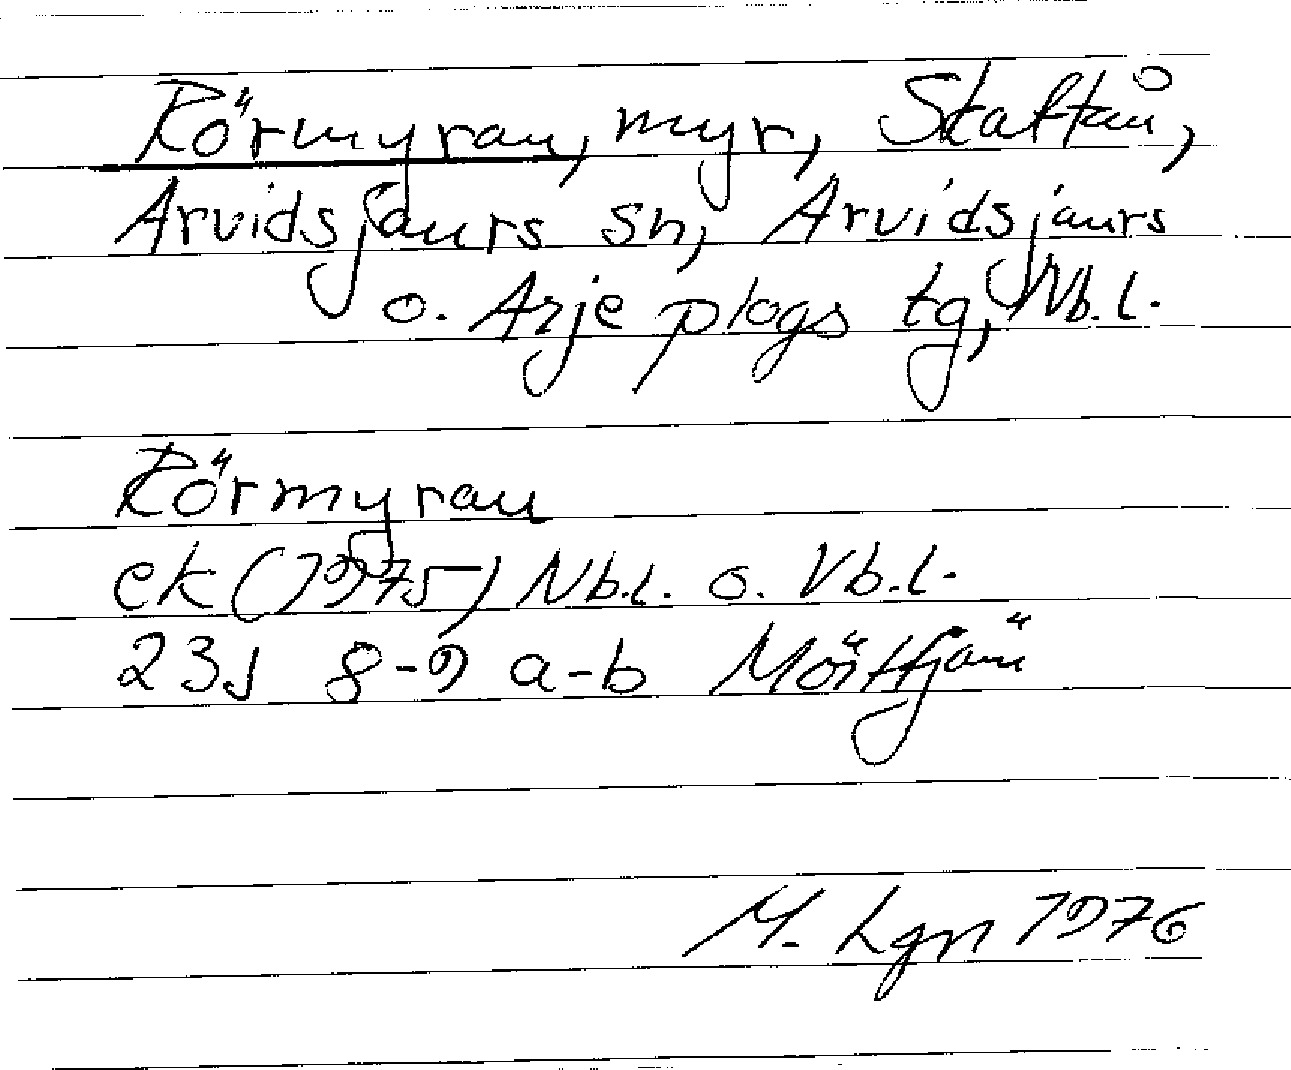 Rörmyran, myr, Staftån,
Arvidsjaurs sn, Arvidsjaurs
o. Arjeplogs tg, Nb.l.
Rörmyran
ek (1975) Nb.l. o. Vb.l.
23J 8-9 a-b Mörttjärn
M. Lgn 1976